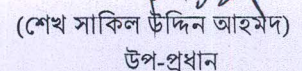 (শেখ সাকিল উদ্দিন আহমেদ)
উপ-প্রধান